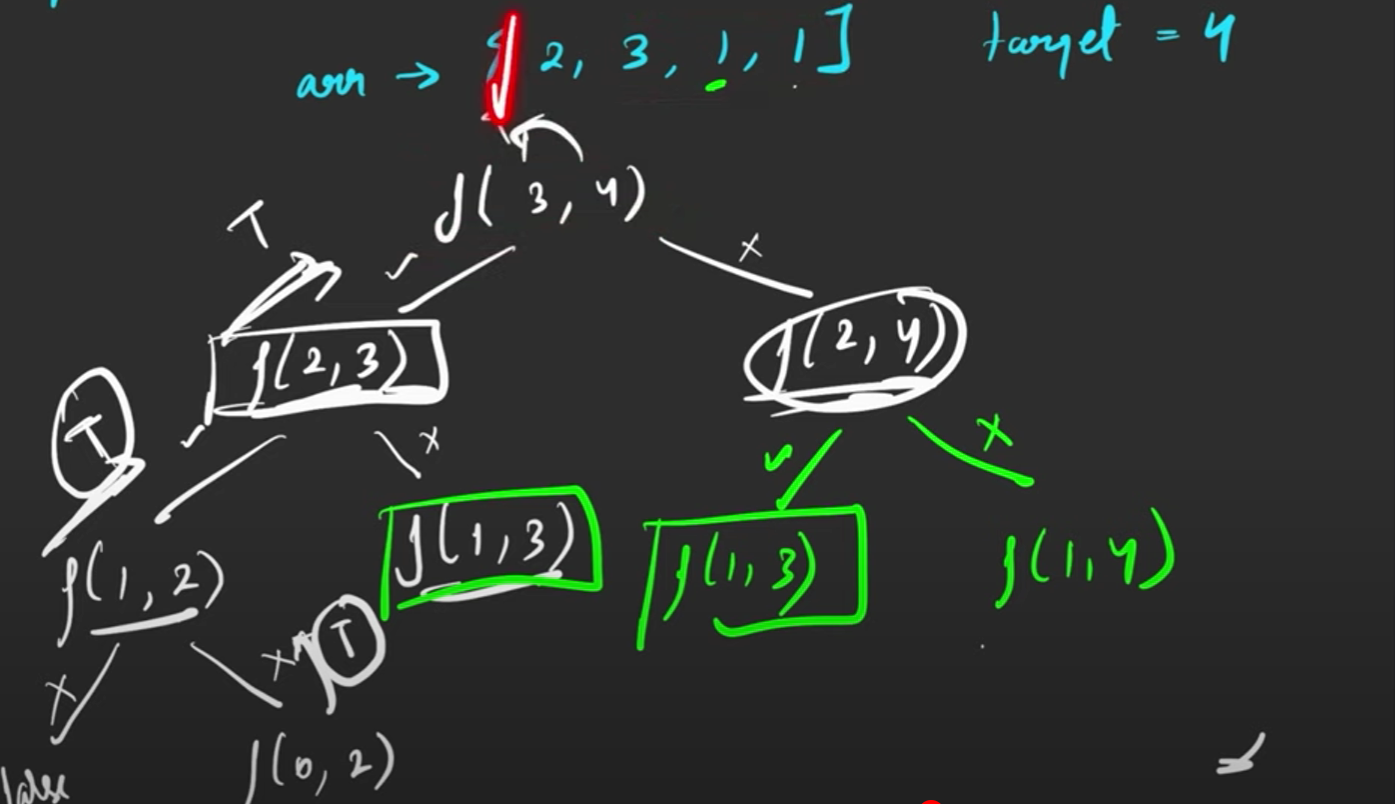 arr → [2, 3, 1, 1] target = 4
f(3, 4)
T ✓ x
f(2, 3) f(2, 4)
T ✓ x ✓ x
f(1, 2) f(1, 3) f(1, 3) f(1, 4)
x x T
false f(0, 2)